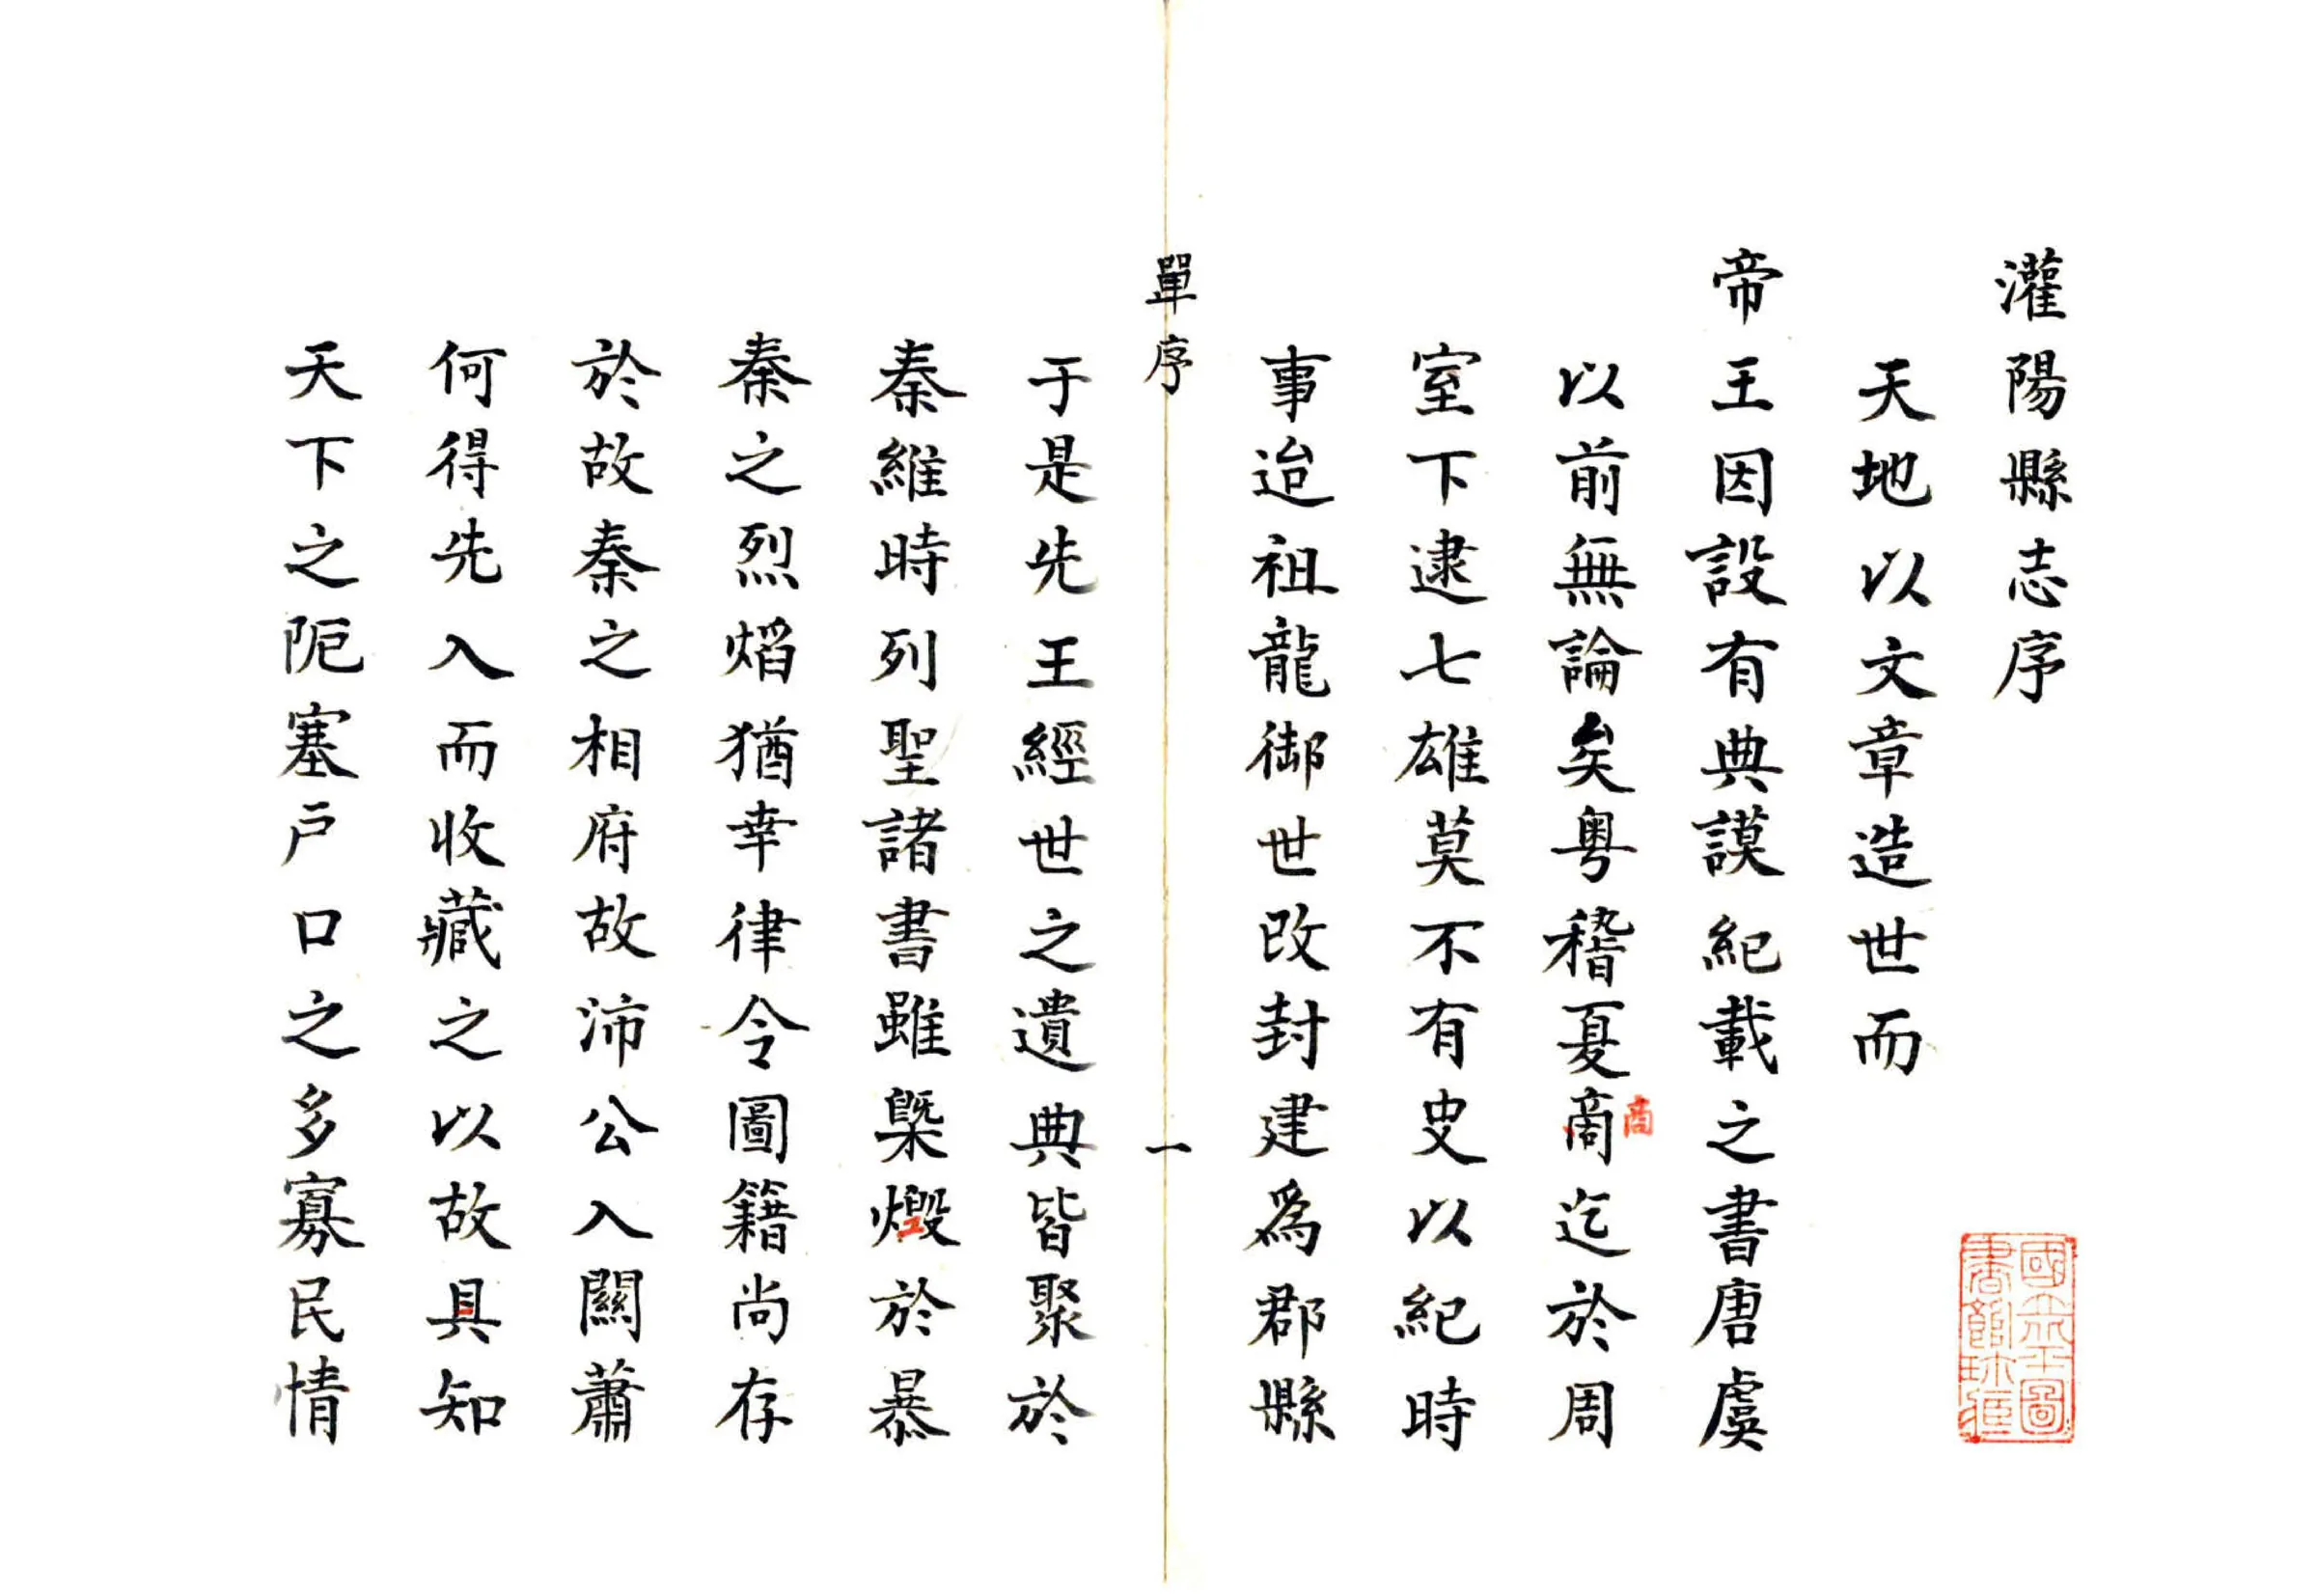 灌陽縣志序
天地以文章造世而
帝王因設有典謨紀載之書唐虞
以前無論矣粵稽夏啇迄於周
商
室下逮七雄莫不有史以紀時
事迨祖龍御世改封建爲郡縣
單序 一
于是先王經世之遺典皆聚於
秦維時列聖諸書雖槩燬於暴
秦之烈熖猶幸律令圖籍尚存
於故秦之相府故沛公入關蕭
何得先入而收藏之以故具知
天下之阨塞戶口之多寡民情
國立北平圖書館珍藏